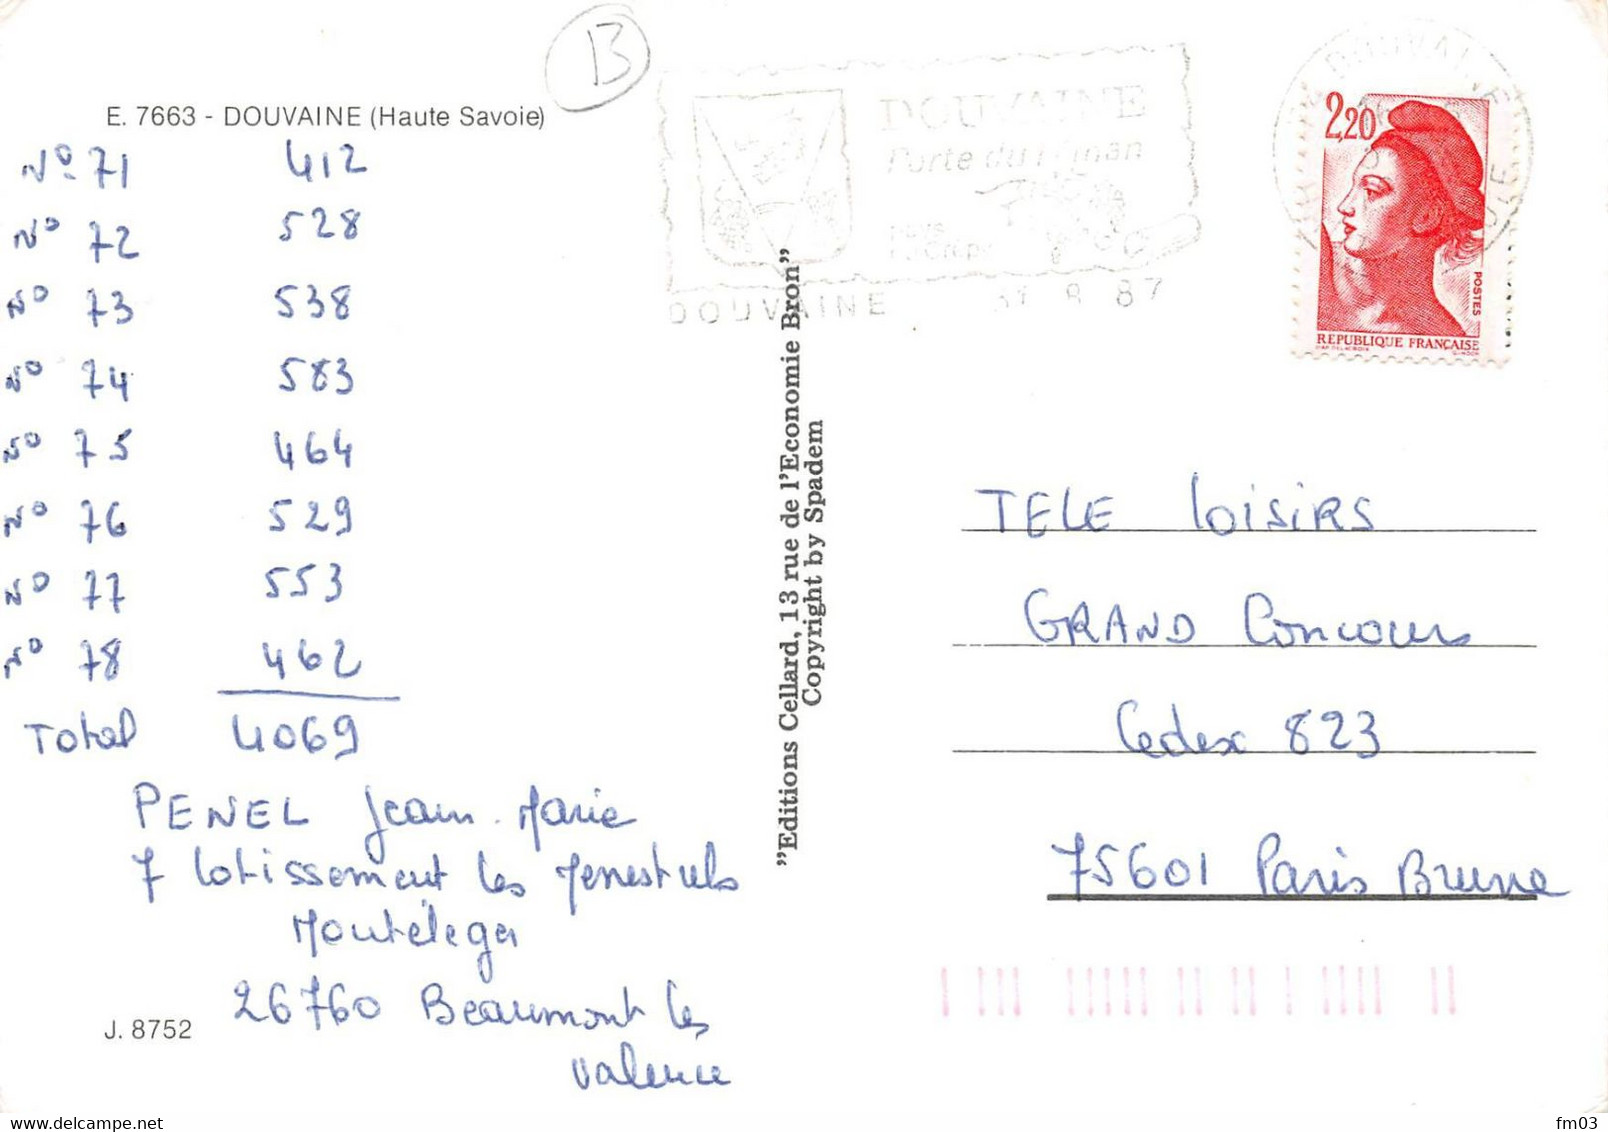 B
E. 7663 - DOUVAINE (Haute Savoie)
N° 71 412
N° 72 528
N° 73 538
N° 74 583
N° 75 464
N° 76 529
N° 77 553
N° 78 462
Total 4069
PENEL Jean-Marie
7 lotissement les Menestrels
Montéleger
26760 Beaumont les
Valence
J. 8752
"Editions Cellard, 13 rue de l'Economie Bron"
Copyright by Spadem
DOUVAINE
Porte du Léman
DOUVAINE 31 8 87
2,20
POSTES
REPUBLIQUE FRANÇAISE
TELE LOISIRS
GRAND Concours
Cedex 823
75601 Paris Brune
fm03